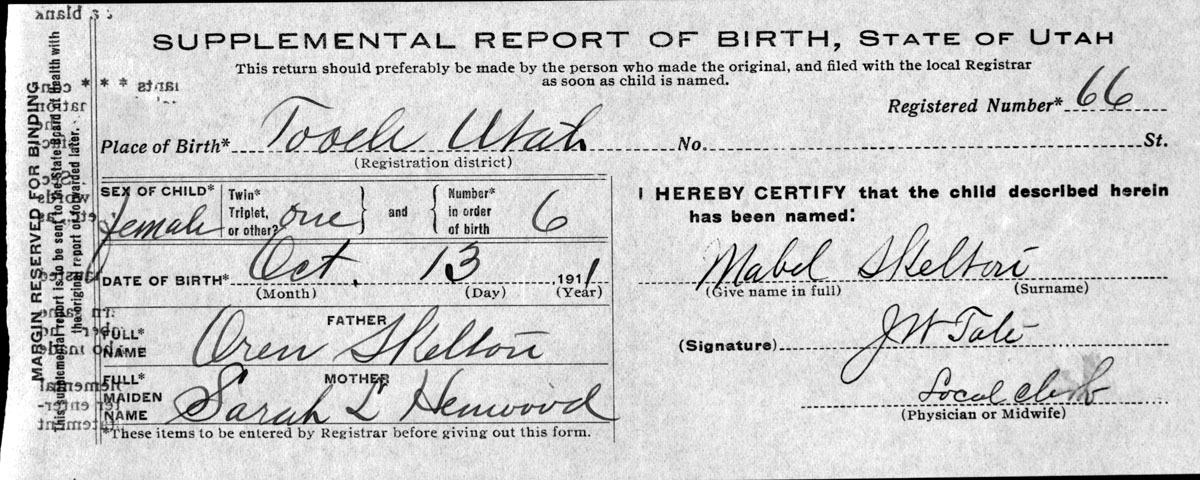 SUPPLEMENTAL REPORT OF BIRTH, STATE OF UTAH
This return should preferably be made by the person who made the original, and filed with the local Registrar
as soon as child is named.
Registered Number* 66
Place of Birth* Tooele Utah No. St.
(Registration district)
SEX OF CHILD* female
Twin* Triplet, or other? one } and { Number* in order of birth 6
DATE OF BIRTH* Oct. 13 , 1911
(Month) (Day) (Year)
FATHER
FULL* NAME Oren Skelton
MOTHER
FULL* MAIDEN NAME Sarah L Henwood
*These items to be entered by Registrar before giving out this form.
I HEREBY CERTIFY that the child described herein
has been named:
Mabel Skelton
(Give name in full) (Surname)
(Signature) J W Tate
Local Clerk
(Physician or Midwife)
MARGIN RESERVED FOR BINDING
This supplemental report is to be sent to the State Board of Health with
the original report or forwarded later.